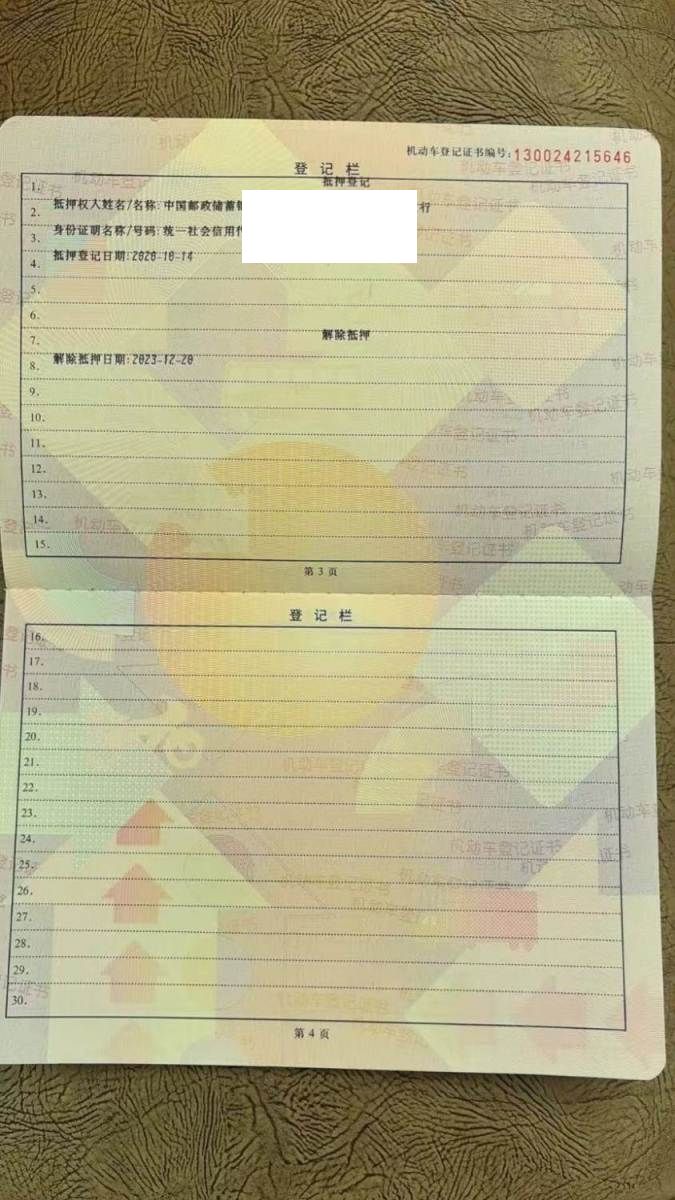 机动车登记证书编号:130024215646
登记栏
1. 抵押登记
2. 抵押权人姓名/名称:中国邮政储蓄 行
3. 身份证明名称/号码:统一社会信用代
4. 抵押登记日期:2020-10-14
5.
6.
7. 解除抵押
8. 解除抵押日期:2023-12-20
9.
10.
11.
12.
13.
14.
15.
第 3 页
登记栏
16.
17.
18.
19.
20.
21.
22.
23.
24.
25.
26.
27.
28.
29.
30.
第 4 页